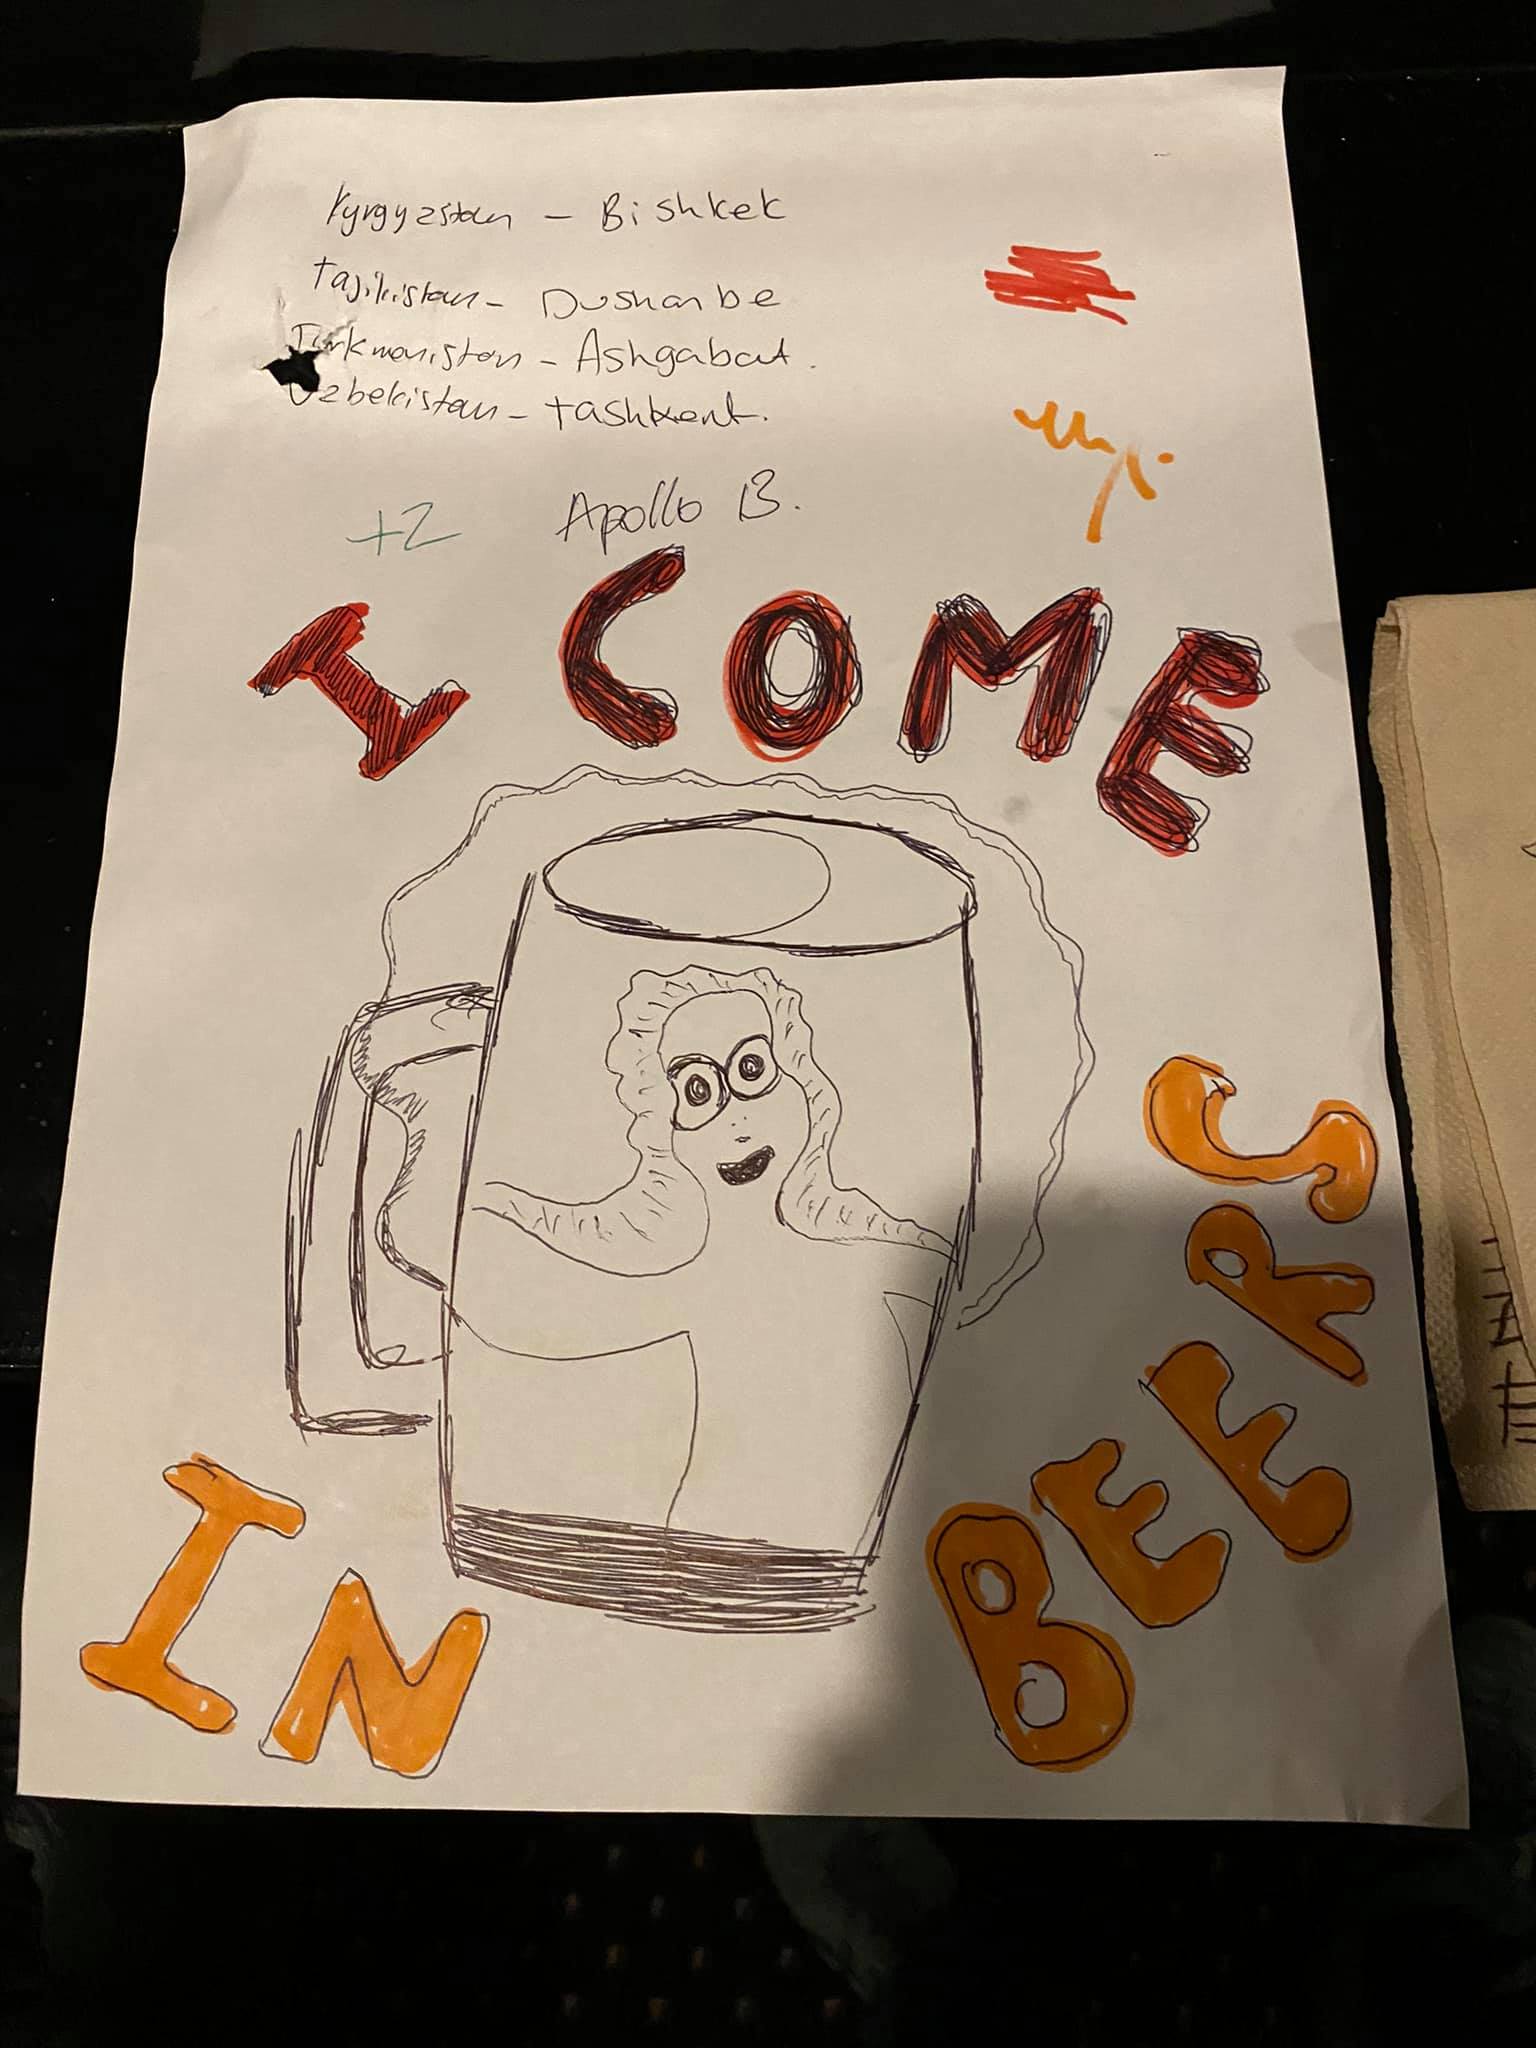 Kyrgyzstan - Bishkek
Tajikistan - Dushanbe
Turkmenistan - Ashgabat.
Uzbekistan - Tashkent.
+2 Apollo 13.
I COME
IN BEERS